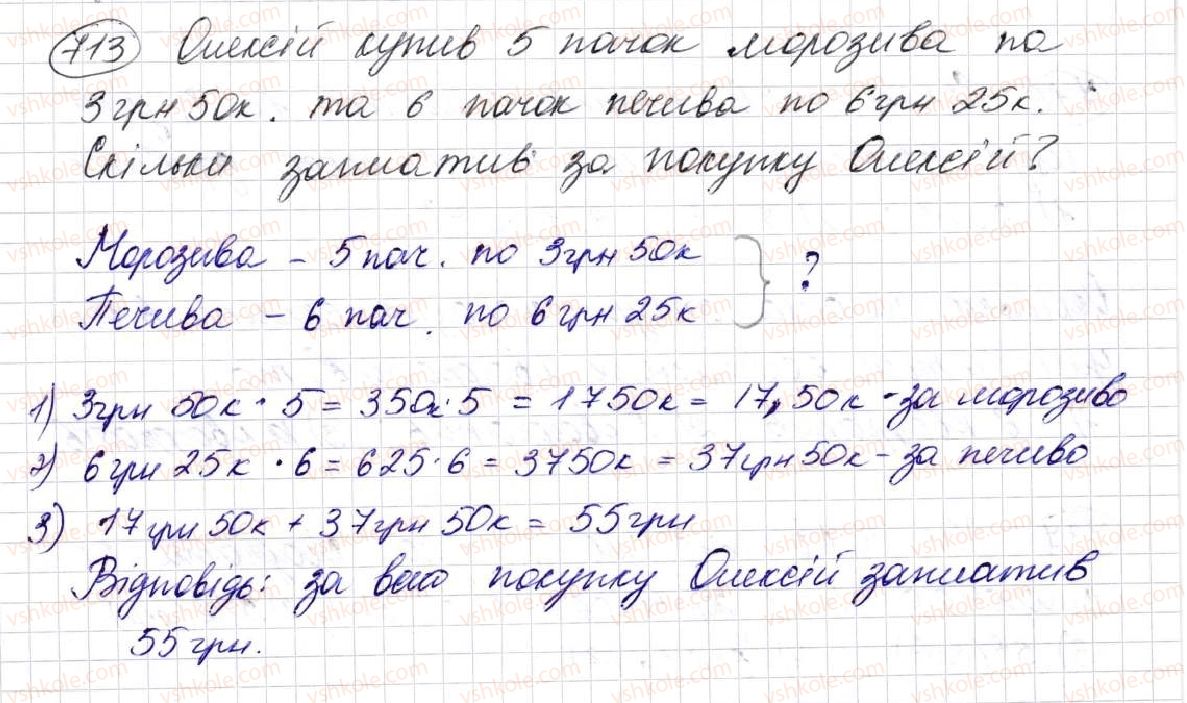 713 Олексій купив 5 пачок морозива по
3грн 50к. та 6 пачок печива по 6грн 25к.
Скільки заплатив за покупку Олексій?
Морозива – 5 пач. по 3грн 50к
Печива – 6 пач. по 6грн 25к } ?
1) 3грн 50к · 5 = 350к · 5 = 1750к = 17, 50к - за морозиво
2) 6грн 25к · 6 = 625 · 6 = 3750к = 37грн 50к - за печиво
3) 17грн 50к + 37грн 50к = 55грн
Відповідь: за всю покупку Олексій заплатив
55грн.